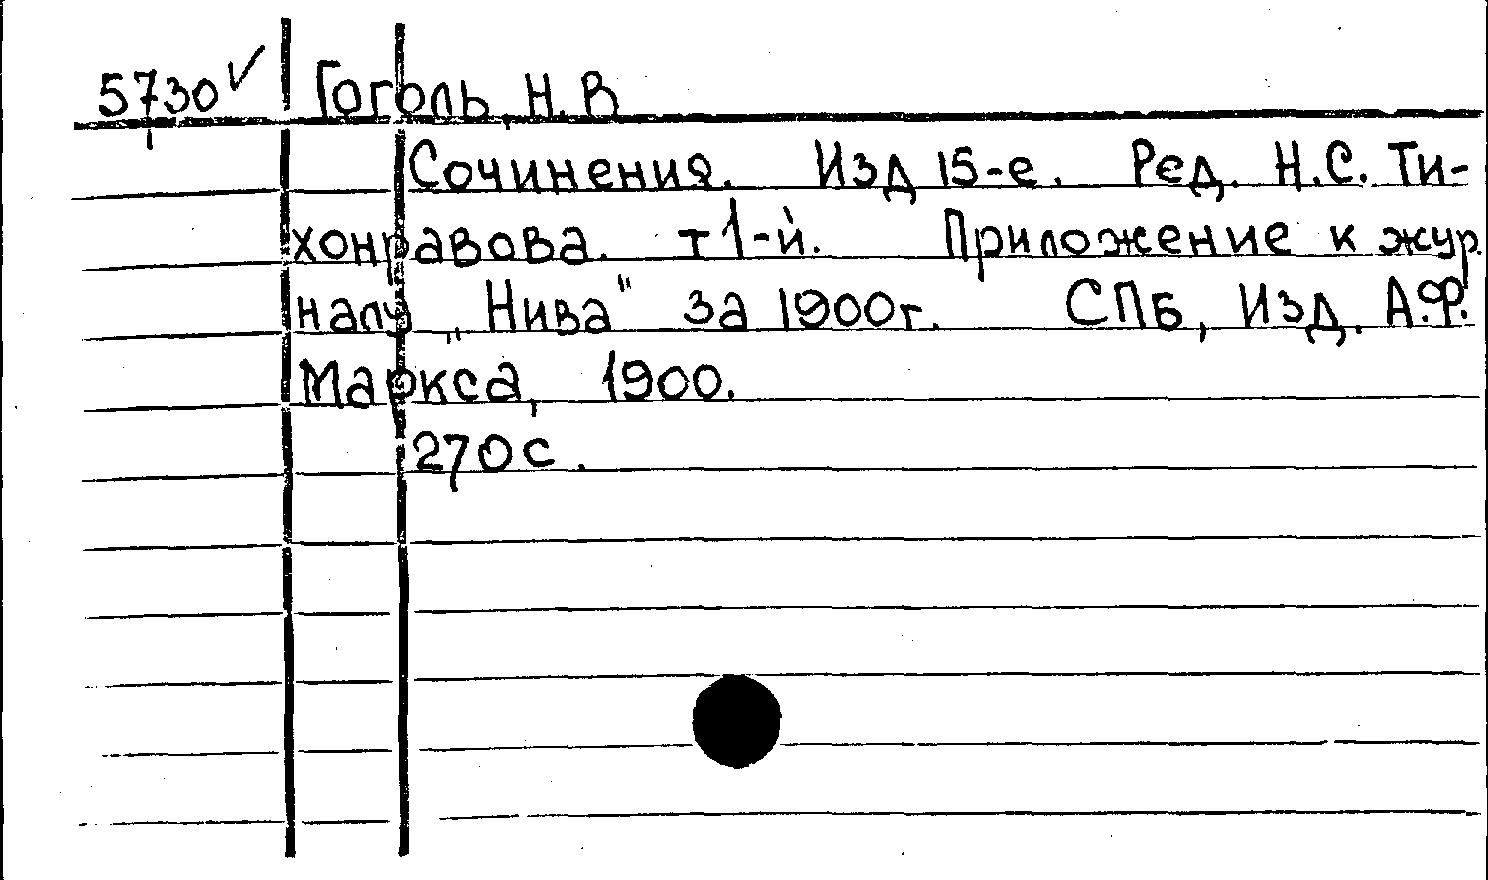 5730✓ Гоголь, Н. В
Сочинения. Изд 15-е. Ред. Н.С. Ти-
хонравова. т 1-й. Приложение к жур
налу „Нива" за 1900г. СПБ, Изд. А.Ф.
Маркса, 1900.
270с.